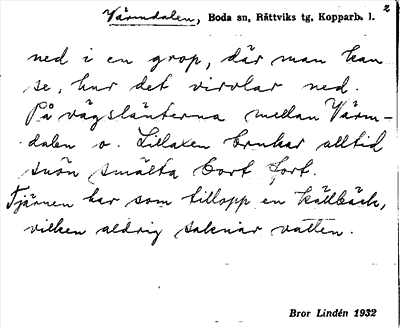 2
Värmdalen, Boda sn, Rättviks tg, Kopparb. l.
ned i en grop, där man kan
se, hur det virvlar ned.
På vägslänterna mellan Värm-
dalen o. Lillaxen brukar alltid
snön smälta bort fort.
Tjärnen har som tillopp en källbäck,
vilken aldrig saknar vatten.
Bror Lindén 1932